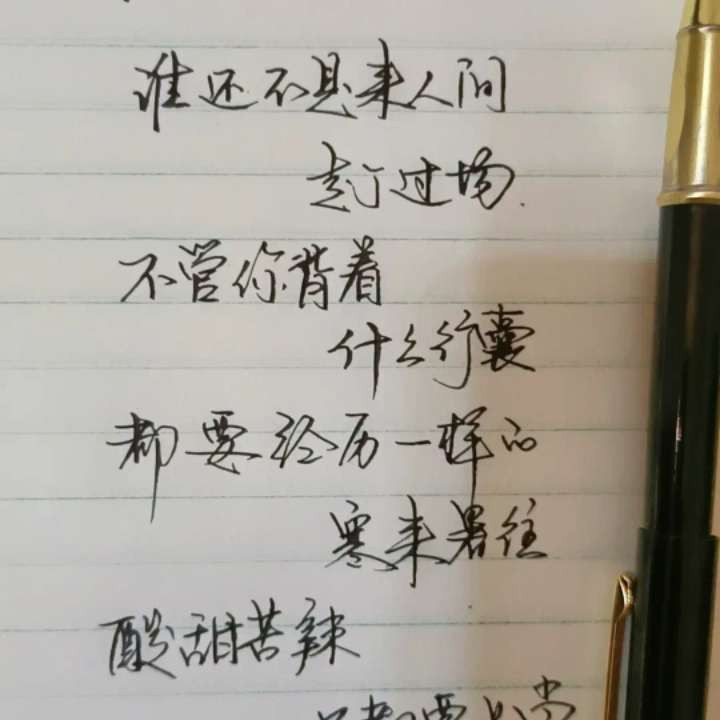 谁还不是来人间
走了过场.
不管你背着
什么行囊
都要经历一样的
寒来暑往
酸甜苦辣
都要